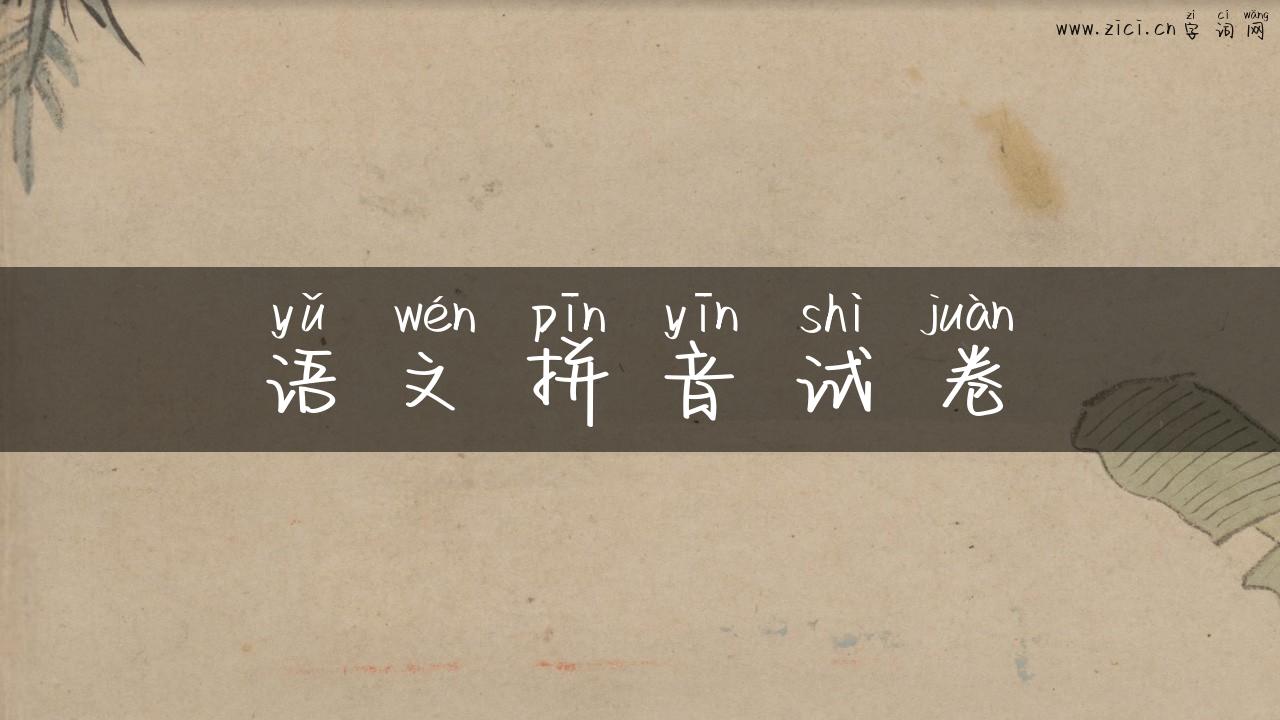 zì cí wǎng
www.zici.cn 字 词 网
yǔ wén pīn yīn shì juàn
语 文 拼 音 试 卷